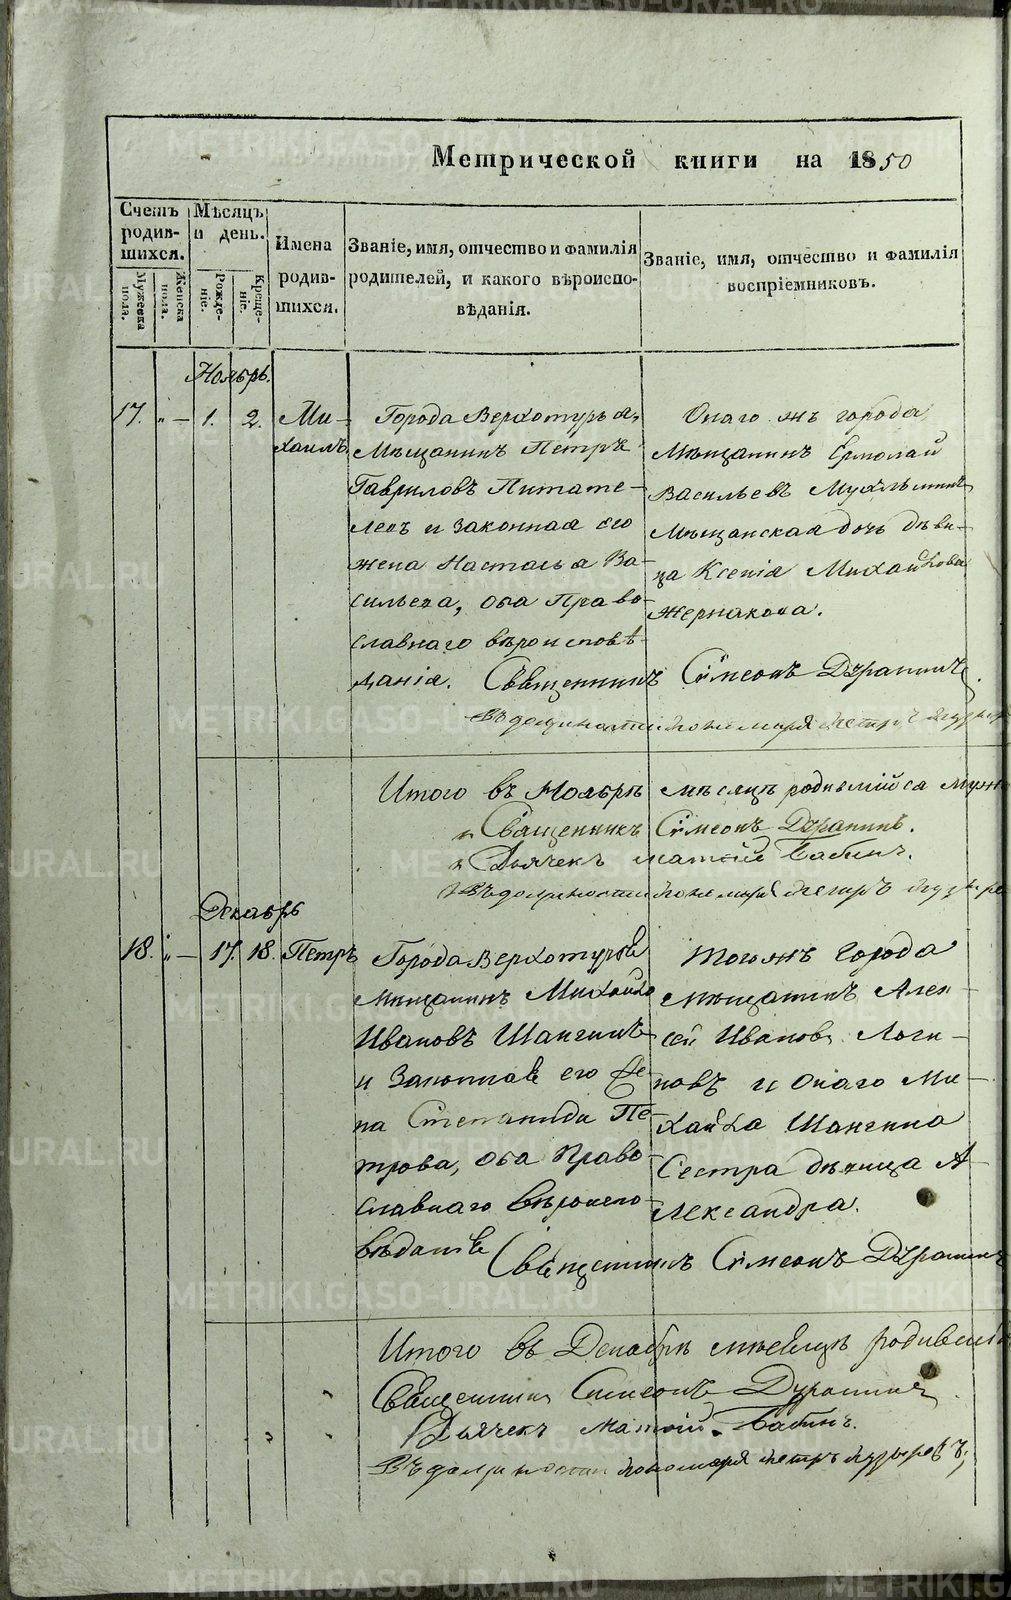 METRIKI.GASO-URAL.RU
Метрической книги на 1850
Счетъ родив-шихся.
Мужеска пола.
Женска пола.
Мѣсяцъ и день.
Рожде-ніе.
Креще-ніе.
Имена родив-шихся.
Званіе, имя, отчество и фамилія родителей, и какого вѣроиспо-вѣданія.
Званіе, имя, отчество и фамилія воспріемниковъ.
Ноябрь.
17. „ — 1. 2. Ми-
хаилъ.
Города Верхотурья,
Мѣщанинъ Петръ
Гавриловъ Питате-
левъ и законная его
жена Настасья Ва-
сильева, оба Право-
славнаго вѣроисповѣ-
данія.
Онаго жъ города
Мѣщанинъ Ермолай
Васильевъ
Мѣщанская дочь дѣви-
ца Ксенія Михайлова
Жернакова.
Священникъ Сѵмеонъ
Въ должности пономаря Петръ Пузырев
Итого въ Ноябрѣ мѣсяцѣ родившійся муж
Священникъ Сѵмеонъ
Дьячекъ Матѳій Бабинъ.
Въ должности пономаря Петръ Пузыре
Декабрь
18. „ — 17. 18. Петръ
Города Верхотурья
Мѣщанинъ Михайло
Ивановъ Шангинъ
и Законная его Же-
на Степанида Пе-
трова, оба Право-
славнаго вѣроиспо-
вѣданія
Тогожъ Города
мѣщанинъ Алек-
сѣй Ивановъ Логи-
новъ и онаго Ми-
хайла Шангина
Сестра дѣвица А-
лександра.
Священникъ Сѵмеонъ
Итого въ Декабрѣ мѣсяцѣ родивші
Священникъ Симеонъ
Дьячекъ Матѳій Бабинъ.
Въ должности пономаря Петръ Пузыревъ,